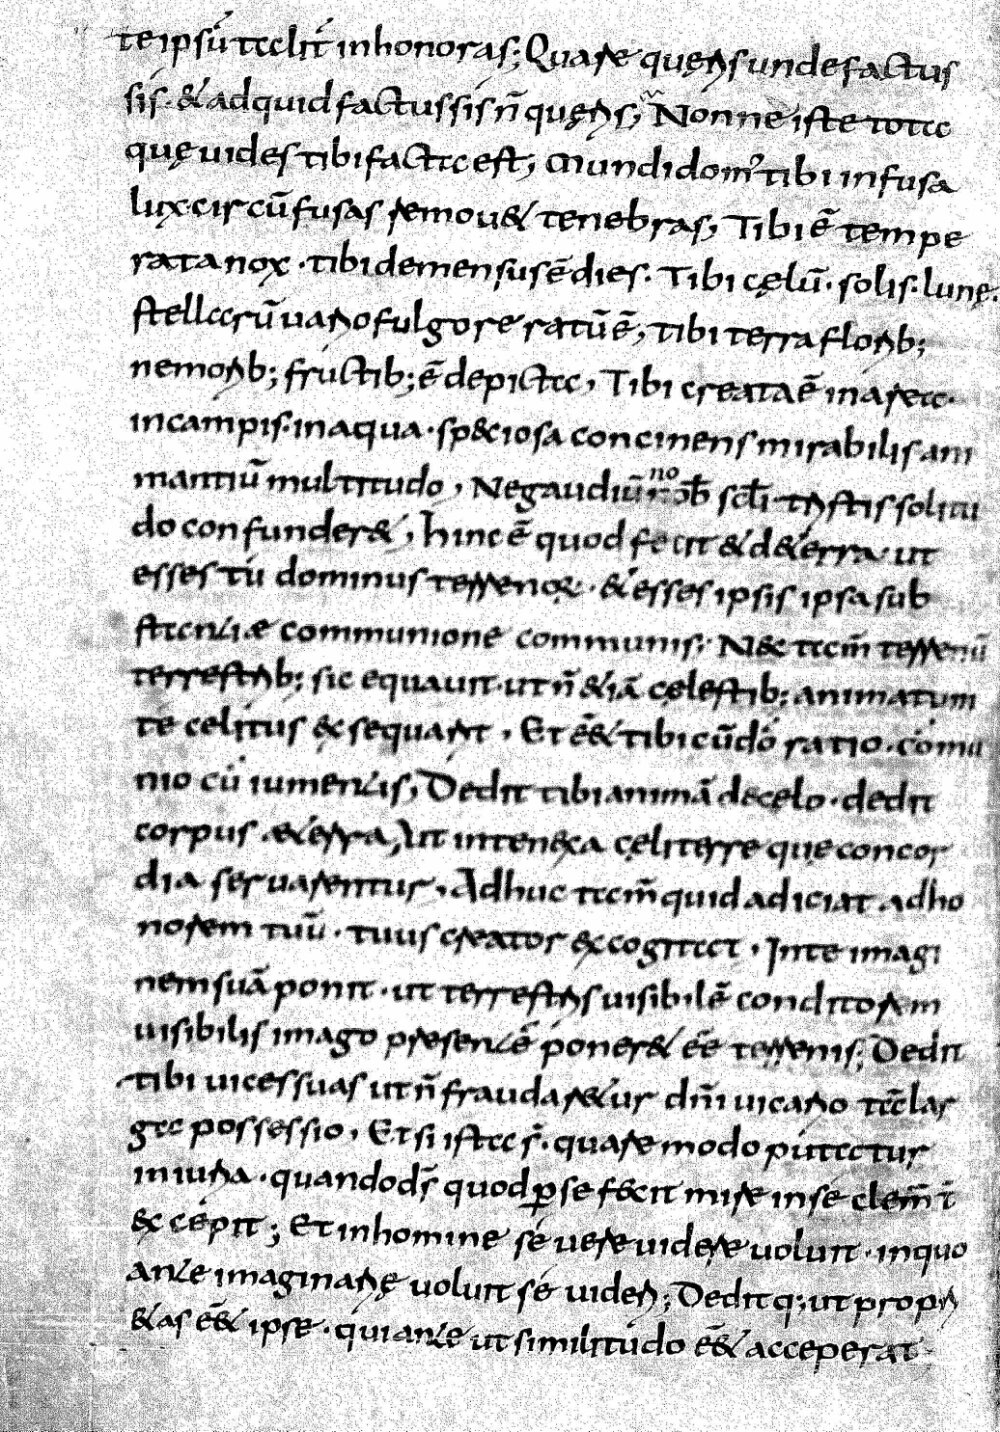 te ipsū talit́ inhonoras; Quare queris unde factus
sis· & ad quid factus sis ñ queris; Nonne iste tota
quę uides tibi facta est, Mundi dom' tibi infusa
lux circūfusas remou& tenebras, Tibi ē tempe
rata nox· tibi demensus ē dies· Tibi cęlū· solis· lunę·
stellarū uario fulgore ratū ē, tibi terra florib;
nemorib; fructib; ē depicta, Tibi creata ē in aere·
in campis· in aqua· sp&iosa concinens mirabilis ani
mantiū multitudo, Ne gaudiū noƀ scłi tristis solitu
do confunder&, hinc ē quod fecit & d& erra· ut
esses tu dominus terrenoꝝ· & esses ipsis ipsa sub
stantiæ communione communis; N& tam̄ terrenū
terrestrib; sic equauit· ut ñ &iā cęlestib; animatum
te celitus exsequant, Et ēē& tibi cū dō ratio· comu
nio cū iumentis, Dedit tibi animā de cęlo· dedit
corpus æ& erra, Ut intenexa cęli terre que concor
dia seruarentur, Adhuc tam̄ quid adiciat ad ho
norem tuū· tuus creator excogitat, In te imagi
nem suā ponit· ut terrestris uisibilē conditorem
uisibilis imago presentē poner& ēē terrenis; Dedit
tibi uices suas ut ñ fraudar&ur dñi uicario tā lar
ga possessio, Et si ista s̄· quare modo putatur
iniuria· quando ds̄ quod ꝑ se fecit mire in se clem̄t
excepit; Et in homine se uere uidere uoluit· in quo
ante imaginarię uoluit se uideri; Dedit q; ut propri
&as ēē& ipse· qui ante ut similitudo ēē& acceperat